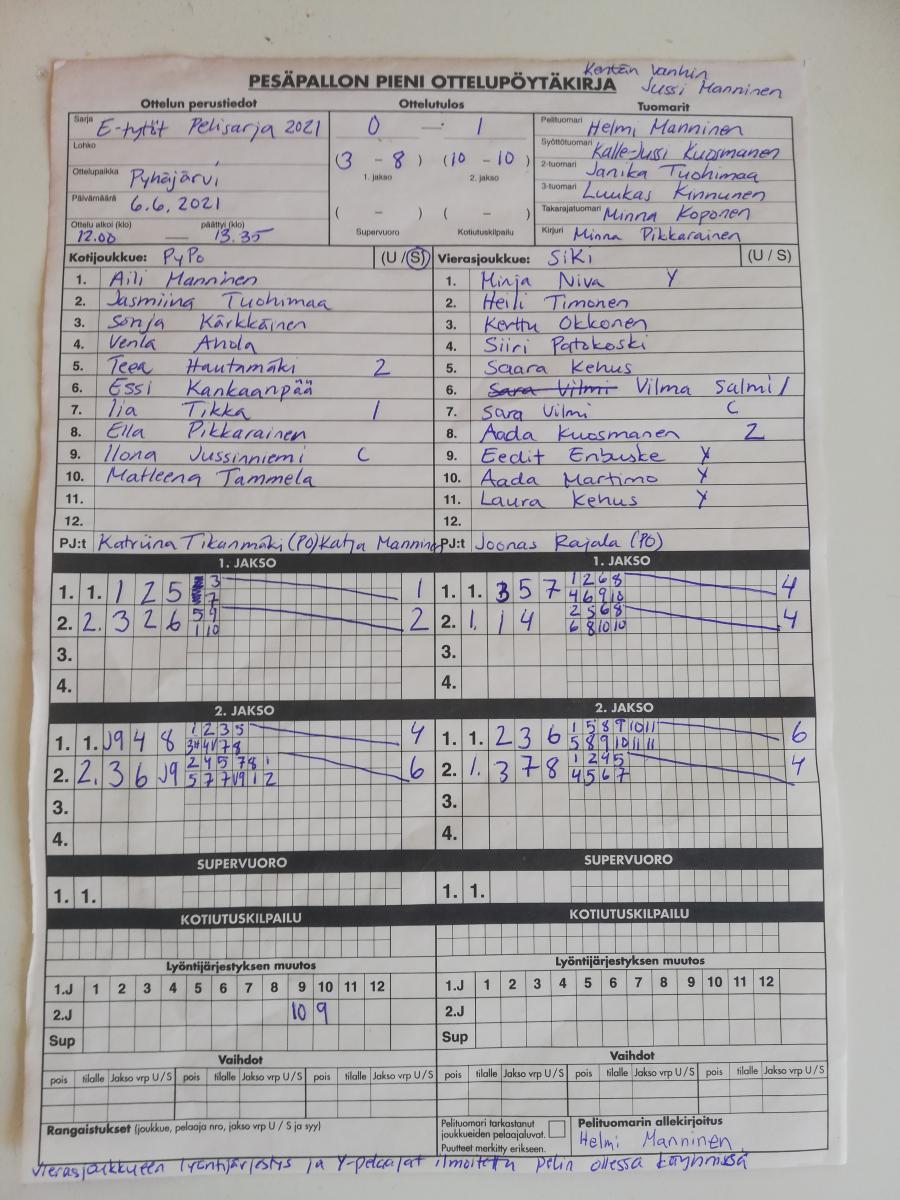 Kentän vanhin
Jussi Manninen
PESÄPALLON PIENI OTTELUPÖYTÄKIRJA
Ottelun perustiedot Ottelutulos Tuomarit
Sarja E-tytöt Pelisarja 2021
Lohko
Ottelupaikka Pyhäjärvi
Päivämäärä 6.6.2021
Ottelu alkoi (klo) päättyi (klo)
12.00 — 13.35
0 — 1
(3 - 8) (10 - 10)
1. jakso 2. jakso
( - ) ( - )
Supervuoro Kotiutuskilpailu
Pelituomari Helmi Manninen
Syöttötuomari Kalle-Jussi Kuosmanen
2-tuomari Janika Tuohimaa
3-tuomari Luukas Kinnunen
Takarajatuomari Minna Koponen
Kirjuri Minna Pikkarainen
Kotijoukkue: PyPo (U / S)
1. Aili Manninen
2. Jasmiina Tuohimaa
3. Sonja Kärkkäinen
4. Venla Ahola
5. Teea Hautamäki 2
6. Essi Kankaanpää
7. Iia Tikka 1
8. Ella Pikkarainen
9. Ilona Jussinniemi C
10. Matleena Tammela
11.
12.
PJ:t Katriina Tikanmäki (PO) Katja Manninen
Vierasjoukkue: SiKi (U / S)
1. Minja Niva Y
2. Heili Timonen
3. Kerttu Okkonen
4. Siiri Patokoski
5. Saara Kehus
6. Sara Vilmi Vilma Salmi 1
7. Sara Vilmi C
8. Aada Kuosmanen 2
9. Eedit Enbuske Y
10. Aada Martimo Y
11. Laura Kehus Y
12.
PJ:t Joonas Rajala (PO)
1. JAKSO
1. 1. 1 2 5 3 1
7
2. 2. 3 2 6 5 9 2
1 10
3.
4.
1. JAKSO
1. 1. 3 5 7 1 2 6 8 4
4 6 9 10
2. 1. 1 4 2 5 6 8 4
6 8 10 10
3.
4.
2. JAKSO
1. 1. J9 4 8 1 2 3 5 4
7 8
2. 2. 3 6 J9 2 4 5 7 8 1 6
5 7 7 J9 1 2
3.
4.
2. JAKSO
1. 1. 2 3 6 1 5 8 9 10 11 6
5 8 9 10 11 11
2. 1. 3 7 8 1 2 4 5 4
4 5 6 7
3.
4.
SUPERVUORO SUPERVUORO
1. 1. 1. 1.
KOTIUTUSKILPAILU KOTIUTUSKILPAILU
Lyöntijärjestyksen muutos Lyöntijärjestyksen muutos
1.J 1 2 3 4 5 6 7 8 9 10 11 12 1.J 1 2 3 4 5 6 7 8 9 10 11 12
2.J 10 9 2.J
Sup Sup
Vaihdot Vaihdot
pois tilalle Jakso vrp U / S pois tilalle Jakso vrp U / S pois tilalle Jakso vrp U / S pois tilalle Jakso vrp U / S pois tilalle Jakso vrp U / S pois tilalle Jakso vrp U / S
Rangaistukset (joukkue, pelaaja nro, jakso vrp U / S ja syy)
Pelituomari tarkastanut
joukkueiden pelaajaluvat.
Puutteet merkitty erikseen.
Pelituomarin allekirjoitus
Helmi Manninen
Vierasjoukkueen lyöntijärjestys ja Y-pelaajat ilmoitettu pelin ollessa käynnissä